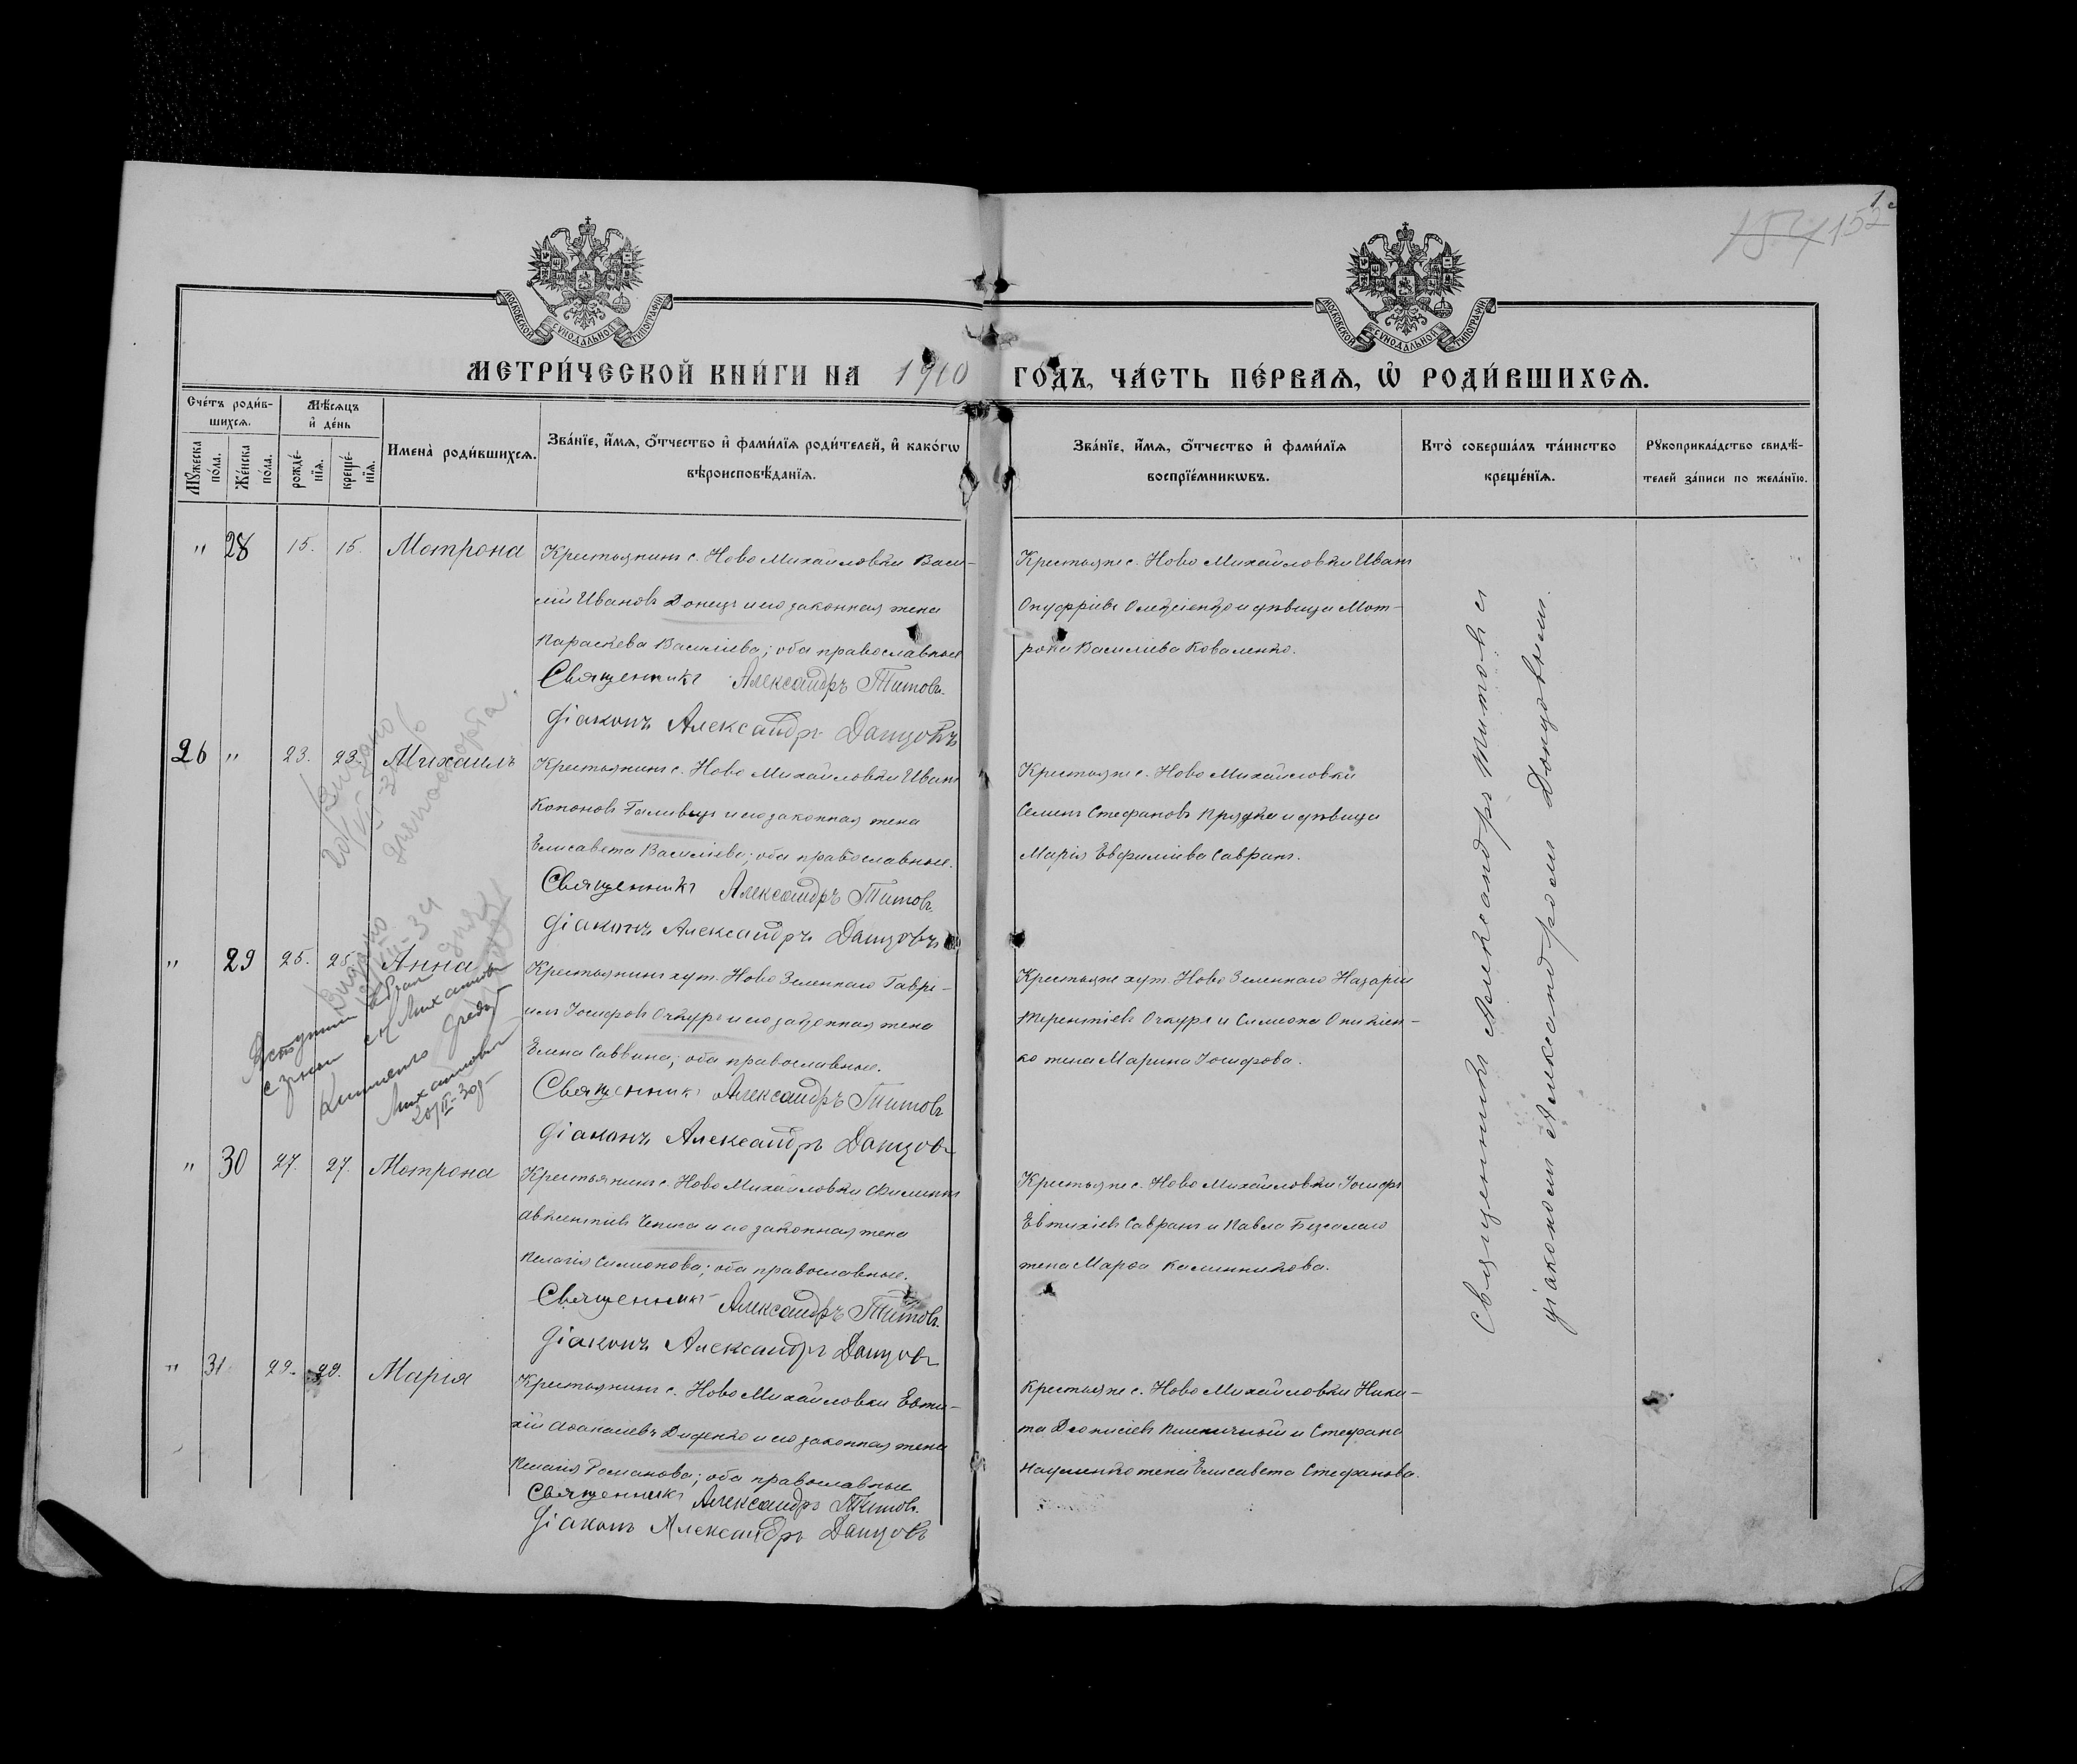 1
154 152
МОСКОВСКОЙ СѴНОДАЛЬНОЙ ТИПОГРАФІИ
МОСКОВСКОЙ СѴНОДАЛЬНОЙ ТИПОГРАФІИ
МЕТРИ́ЧЕСКОЙ КНИ́ГИ НА 1910 ГО́ДЪ, ЧА́СТЬ ПЕ́РВАѦ, Ѡ҆ РОДИ́ВШИХСѦ.
Сче́тъ роди́в-
шихсѧ.
Мꙋ́жеска по́ла.
Же́нска по́ла.
Мѣ́сѧцъ
и҆ де́нь
рожде́-
нїѧ.
креще́-
нїѧ.
Имена̀ роди́вшихсѧ.
Зва́нїе, и҆́мѧ, ѻ҆́тчество и҆ фами́лїѧ роди́телей, и҆ како́гѡ
вѣроисповѣ́данїѧ.
Зва́нїе, и҆́мѧ, ѻ҆́тчество и҆ фами́лїѧ
воспрїе́мникѡвъ.
Кто̀ соверша́лъ та́инство
креще́нїѧ.
Рꙋкоприкла́дство свидѣ́-
телей за́писи по жела́нїю.
" 28 15. 15. Мотрона
Крестьянинъ с. Ново Михайловки Васи-
лій Ивановъ Донецъ и его законная жена
Параскева Василіева; оба православные
Священникъ Александръ Титовъ.
Діаконъ Александръ Донцовъ
Крестьяне с. Ново Михайловки Иванъ
Онуфріевъ Олексіенко и дѣвица Мот-
рона Василіева Коваленко.
26 " 23. 23. Михаилъ
Крестьянинъ с. Ново Михайловки Иванъ
Кононовъ Галивецъ и его законная жена
Елисавета Василіева; оба православные.
Священникъ Александръ Титовъ.
Діаконъ Александръ Донцовъ
Крестьяне с. Ново Михайловки
Семенъ Стефановъ Прядка и дѣвица
Марія Евфиміева Савранъ.
" 29 25. 25. Анна
Крестьянинъ хут. Ново Зеленнаго Гаврі-
илъ Іосифовъ Очкуръ и его законная жена
Елена Саввина; оба православные.
Священникъ Александръ Титовъ
Діаконъ Александръ Донцовъ
Крестьяне хут. Ново Зеленнаго Назарій
Терентіевъ Очкуръ и Симеона Оникіен-
ко жена Марина Іосифова.
" 30 27. 27. Мотрона
Крестьянинъ с. Ново Михайловки Филиппъ
Авксентіевъ Чепига и его законная жена
Пелагія Симеонова; оба православные.
Священникъ Александръ Титовъ.
Діаконъ Александръ Донцовъ
Крестьяне с. Ново Михайловки Іосифъ
Евтихіевъ Савранъ и Павла Безсалаго
жена Марѳа Калинникова.
" 31. 29. 29. Марія
Крестьянинъ с. Ново Михайловки Евти-
хій Аѳанасіевъ Диденко и его законная жена
Пелагія Романова; оба православные
Священникъ Александръ Титовъ.
Діаконъ Александръ Донцовъ
Крестьяне с. Ново Михайловки Ники-
та Діонисіевъ Пшеничный и Стефана
Науменко жена Елисавета Стефанова.
Священникъ Александръ Титовъ и
діакономъ Александромъ Донцовымъ.
Видано
для паспорта.
Видано
Вступил в брак
Михайлови
20/III-30 г